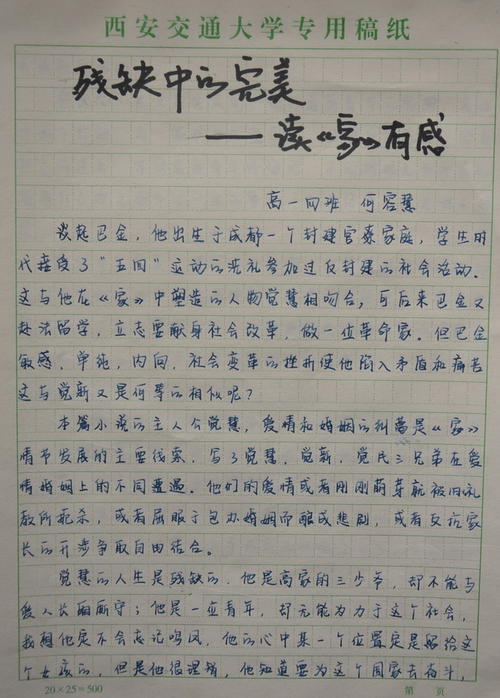 西安交通大学专用稿纸
残缺中的完美
——读《家》有感
高一四班 何容慧
谈起巴金，他出生于成都一个封建官僚家庭，学生时
代接受了“五四”运动的洗礼参加过反封建的社会活动。
这与他在《家》中塑造的人物觉慧相吻合，而后来巴金又
赴法留学，立志要献身社会改革，做一位革命家。但巴金
敏感，单纯，内向，社会变革的挫折使他陷入矛盾和痛苦
这与觉新又是何等的相似呢？
本篇小说的主人公觉慧，爱情和婚姻的纠葛是《家》
情节发展的主要线索，写了觉慧，觉新，觉民三兄弟在爱
情婚姻上的不同遭遇。他们的爱情或者刚刚萌芽就被旧礼
教所扼杀，或者屈服于包办婚姻而酿成悲剧，或者反抗家
长的干涉争取自由结合。
觉慧的人生是残缺的，他是高家的三少爷，却不能与
爱人长厢厮守；他是一位青年，却无能为力于这个社会，
我想他定不会忘记鸣凤，他的心中某一个位置定是留给这
个女孩的，但是他很理智，他知道要为这个国家去奋斗，
20×25=500 第 页